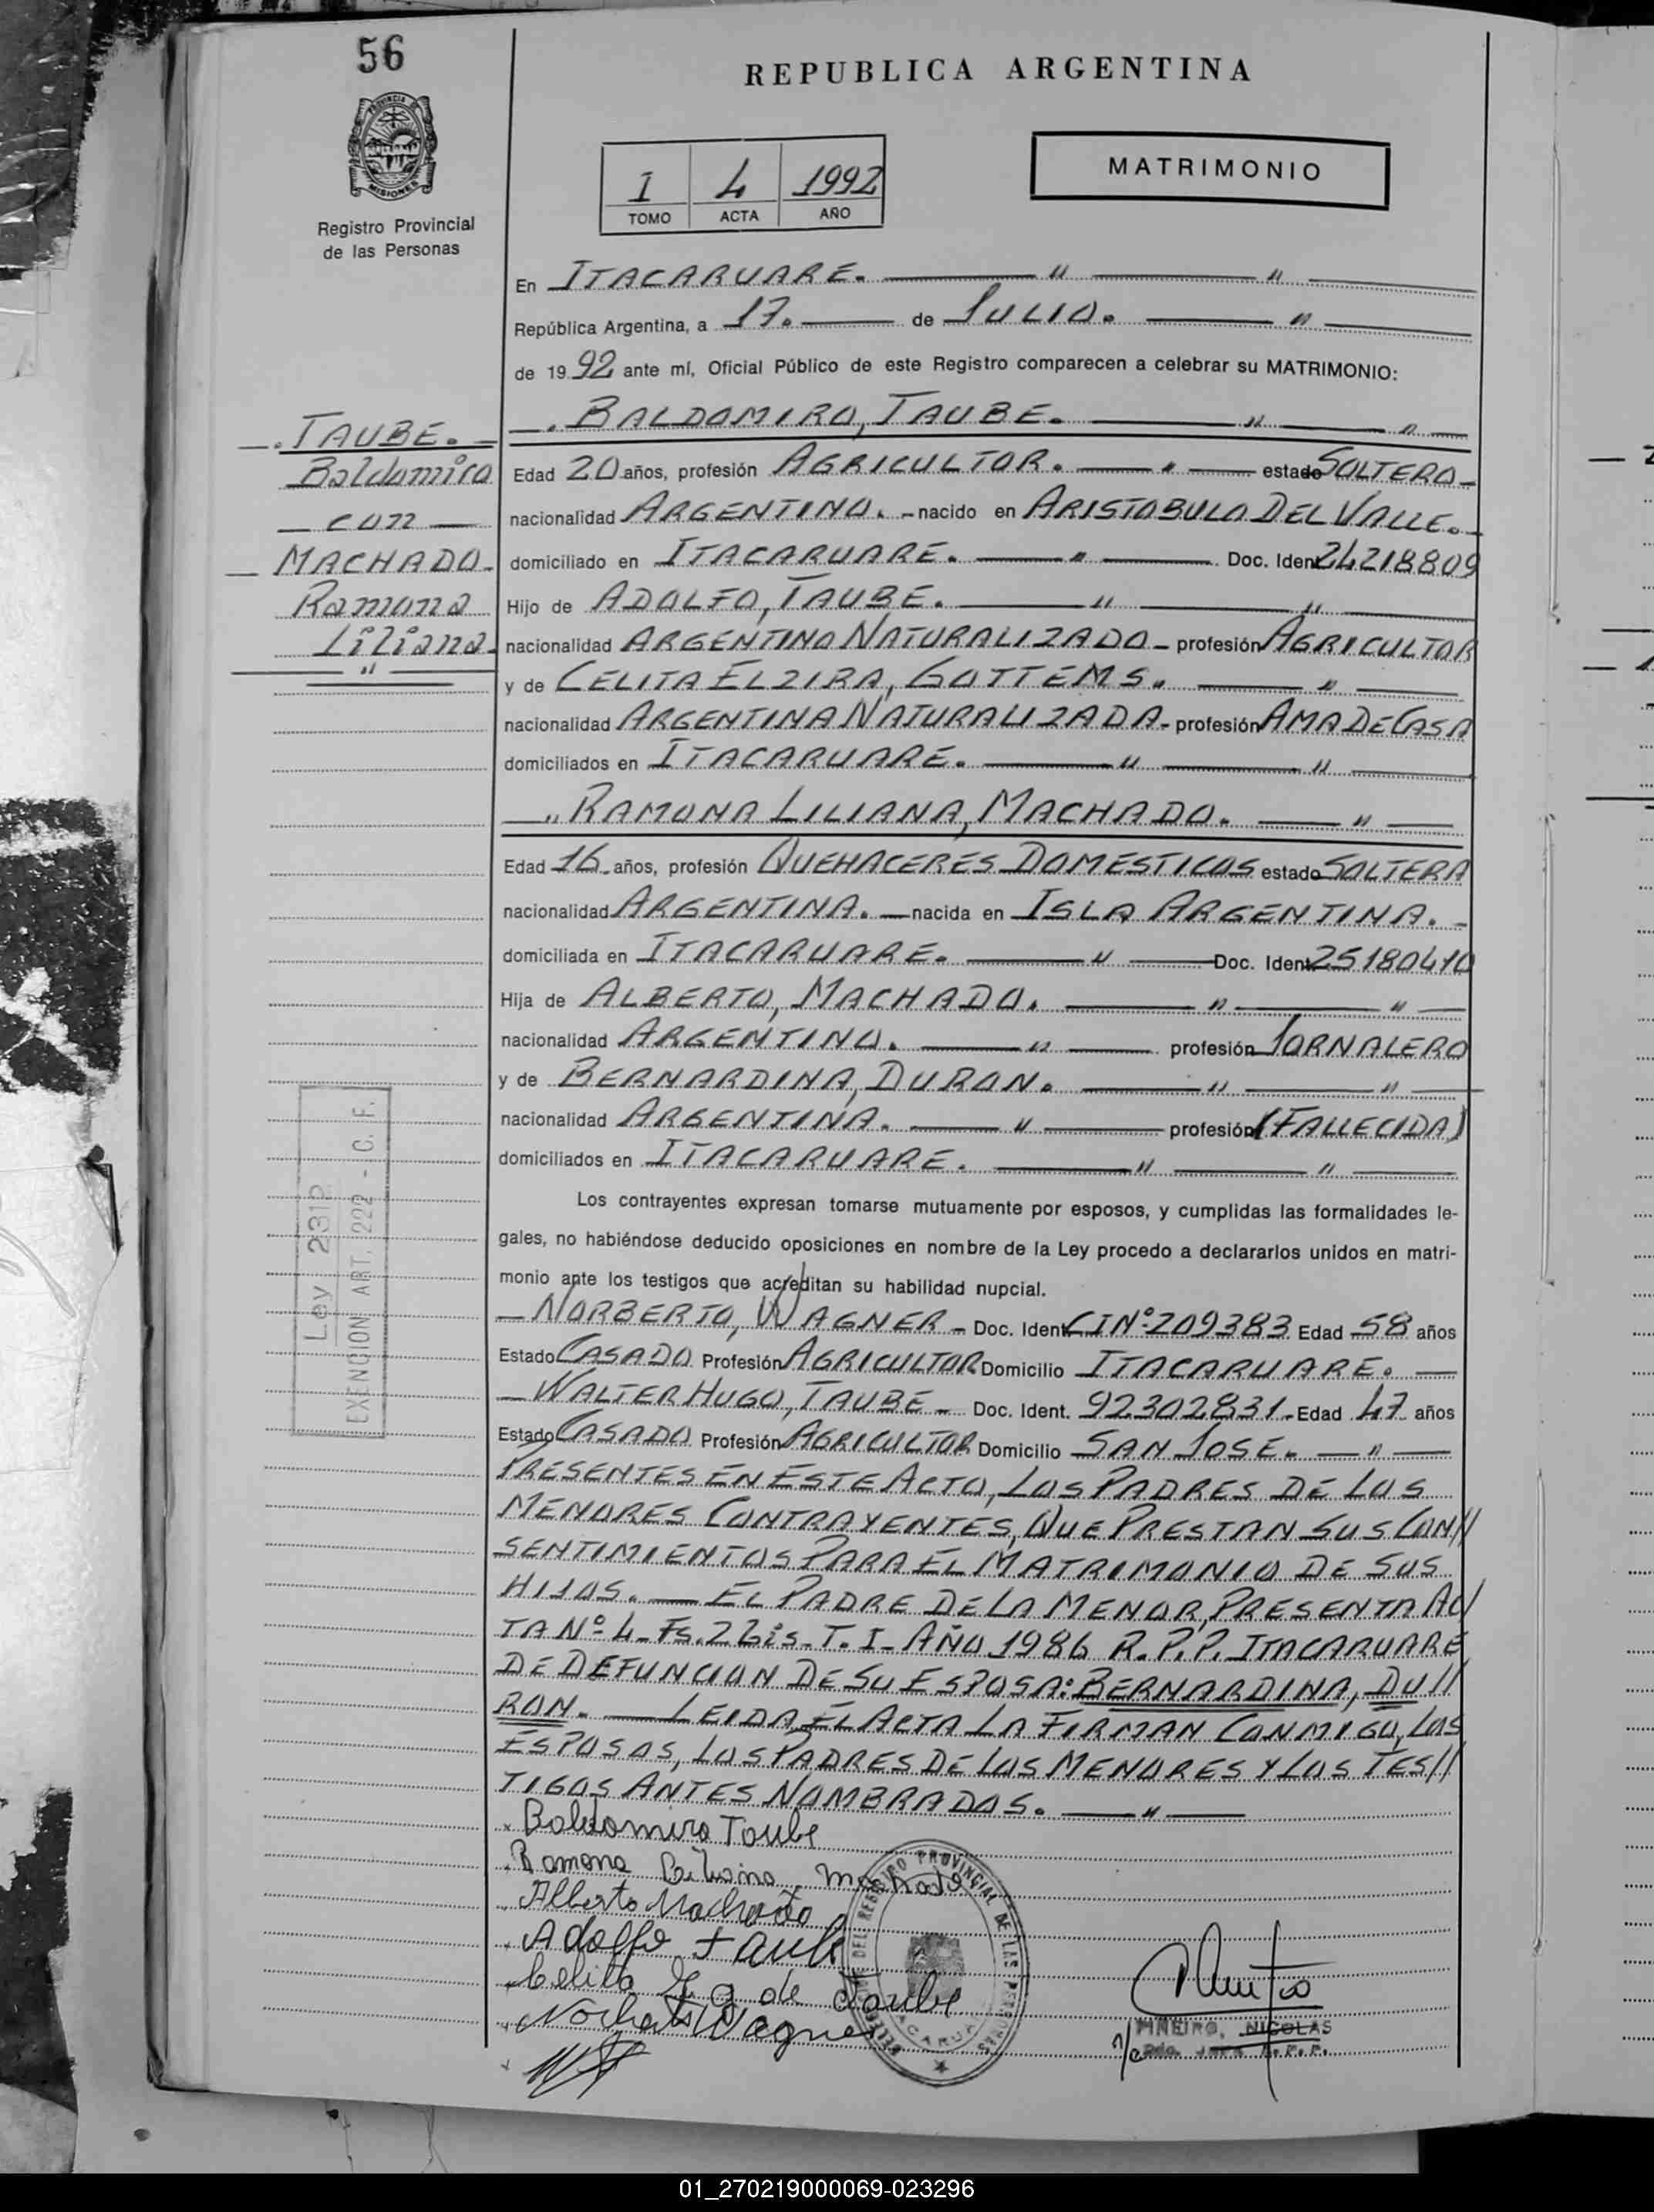 56
REPUBLICA ARGENTINA
PROVINCIA DE
MISIONES
Registro Provincial
de las Personas
I 4 1992
TOMO ACTA AÑO
MATRIMONIO
En ITACARUARE. " "
República Argentina, a 17. de JULIO. "
de 1992 ante mí, Oficial Público de este Registro comparecen a celebrar su MATRIMONIO:
TAUBE.
Baldomiro
con
MACHADO.
Ramona
Liliana
"
BALDOMIRO, TAUBE. " "
Edad 20 años, profesión AGRICULTOR. " estado SOLTERO
nacionalidad ARGENTINO. nacido en ARISTOBULO DEL VALLE.
domiciliado en ITACARUARE. " Doc. Ident 24218809
Hijo de ADOLFO, TAUBE. " "
nacionalidad ARGENTINO NATURALIZADO - profesión AGRICULTOR
y de CELITA ELZIRA, GOTTEMS. "
nacionalidad ARGENTINA NATURALIZADA - profesión AMA DE CASA
domiciliados en ITACARUARE. " "
" RAMONA LILIANA, MACHADO. "
Edad 16 años, profesión QUEHACERES DOMESTICOS estado SOLTERA
nacionalidad ARGENTINA. nacida en ISLA ARGENTINA.
domiciliada en ITACARUARE. " Doc. Ident 25180410
Hija de ALBERTO, MACHADO. " "
nacionalidad ARGENTINO. " profesión JORNALERO
y de BERNARDINA, DURON. " "
nacionalidad ARGENTINA. " profesión (FALLECIDA)
domiciliados en ITACARUARE. " "
Los contrayentes expresan tomarse mutuamente por esposos, y cumplidas las formalidades le-
gales, no habiéndose deducido oposiciones en nombre de la Ley procedo a declararlos unidos en matri-
monio ante los testigos que acreditan su habilidad nupcial.
NORBERTO, WAGNER - Doc. Ident CI Nº 209383 Edad 58 años
Estado CASADO Profesión AGRICULTOR Domicilio ITACARUARE.
WALTER HUGO, TAUBE - Doc. Ident. 92302831 - Edad 47 años
Estado CASADO Profesión AGRICULTOR Domicilio SAN JOSE. "
PRESENTES EN ESTE ACTO, LOS PADRES DE LOS
MENORES CONTRAYENTES, QUE PRESTAN SUS CON//
SENTIMIENTOS PARA EL MATRIMONIO DE SUS
HIJOS. EL PADRE DE LA MENOR, PRESENTA AC/
TA Nº 4 - Fs. 2 bis - T. I - AÑO 1986 R.P.P. ITACARUARE
DE DEFUNCION DE SU ESPOSA: BERNARDINA, DU//
RON. LEIDA EL ACTA LA FIRMAN CONMIGO, LOS
ESPOSOS, LOS PADRES DE LOS MENORES Y LOS TES//
TIGOS ANTES NOMBRADOS. "
Ley 2310
EXENCION ART. 222 - C. F.
Baldomiro Taube
Ramona Liliana Machado
Alberto Machado
Adolfo Taube
Celita E g de Taube
Norberto Wagner
PIÑEIRO, NICOLAS
01_270219000069-023296